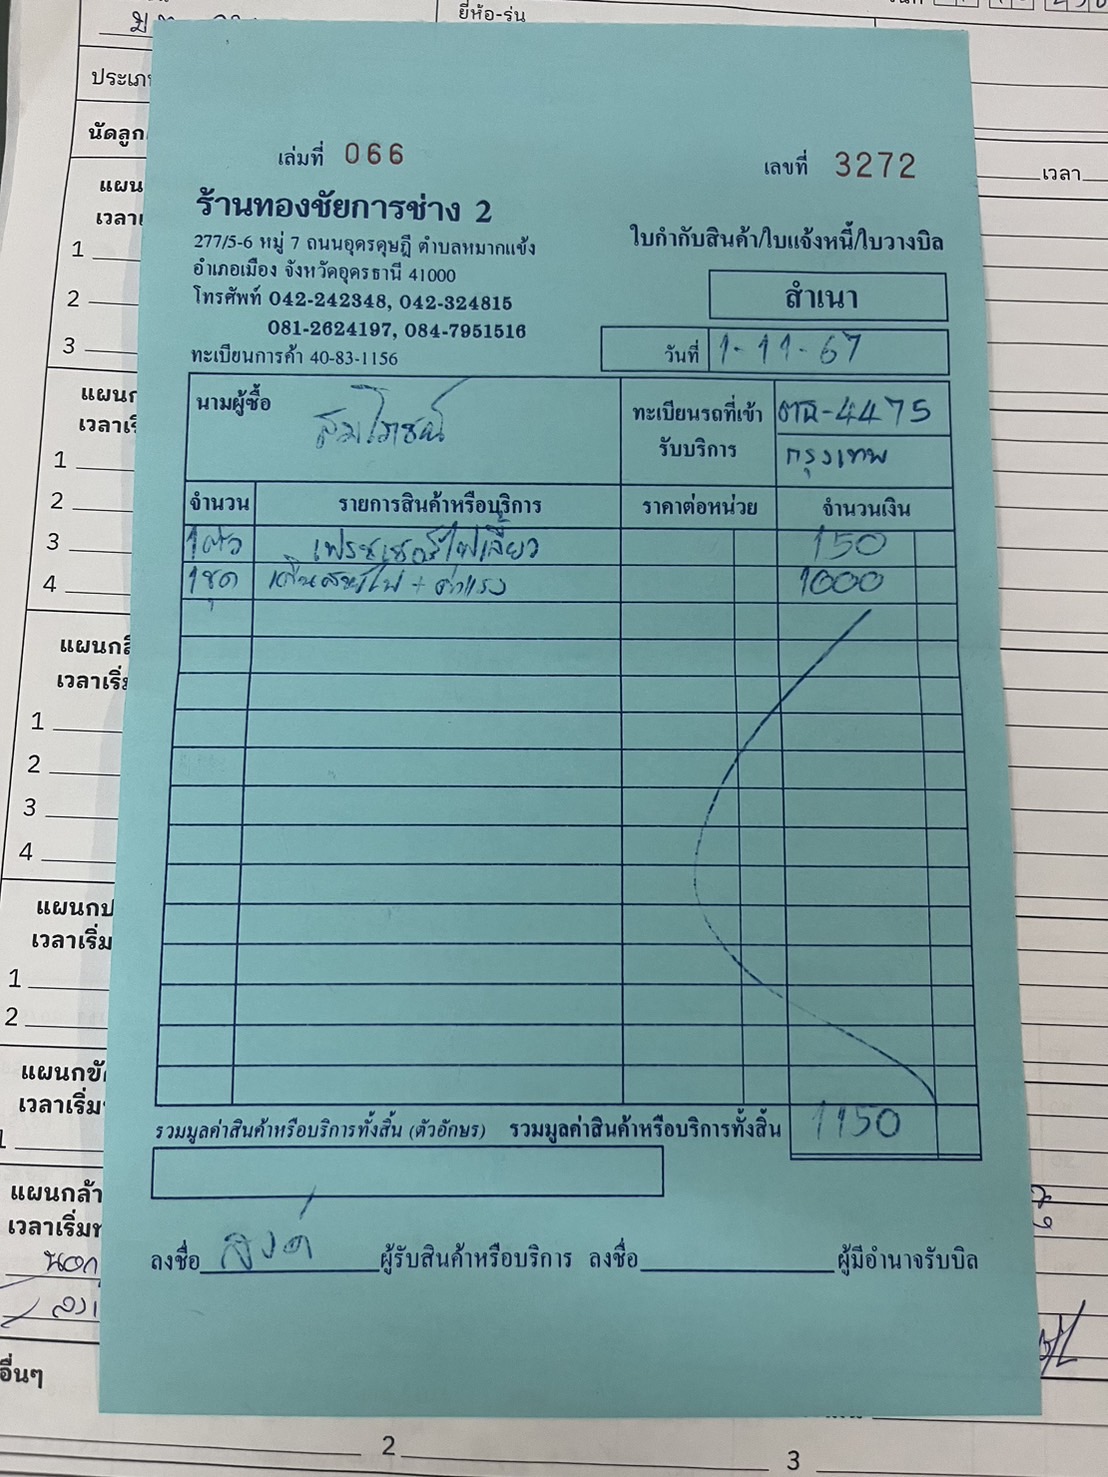 ยี่ห้อ-รุ่น
ประเภ
นัดลูก
เวลา
เล่มที่ 066
เลขที่ 3272
ร้านทองชัยการช่าง 2
277/5-6 หมู่ 7 ถนนอุดรดุษฎี ตำบลหมากแข้ง
อำเภอเมือง จังหวัดอุดรธานี 41000
โทรศัพท์ 042-242348, 042-324815
081-2624197, 084-7951516
ทะเบียนการค้า 40-83-1156
ใบกำกับสินค้า/ใบแจ้งหนี้/ใบวางบิล
สำเนา
วันที่ 1-11-67
นามผู้ซื้อ
ทะเบียนรถที่เข้ารับบริการ
-4475
กรุงเทพ
จำนวน รายการสินค้าหรือบริการ ราคาต่อหน่วย จำนวนเงิน
1ตัว เฟรชเชอร์ไฟเลี้ยว 150
1ชุด เดินสายไฟ + ค่าแรง 1000
รวมมูลค่าสินค้าหรือบริการทั้งสิ้น (ตัวอักษร) รวมมูลค่าสินค้าหรือบริการทั้งสิ้น 1150
ลงชื่อ ผู้รับสินค้าหรือบริการ ลงชื่อ ผู้มีอำนาจรับบิล
แผน
เวลา
1
2
3
แผนก
เวลาเริ่
1
2
3
4
แผนกสี
เวลาเริ่ม
1
2
3
4
แผนกป
เวลาเริ่ม
1
2
แผนกขั
เวลาเริ่ม
1
แผนกล้า
เวลาเริ่มท
อื่นๆ
2
3